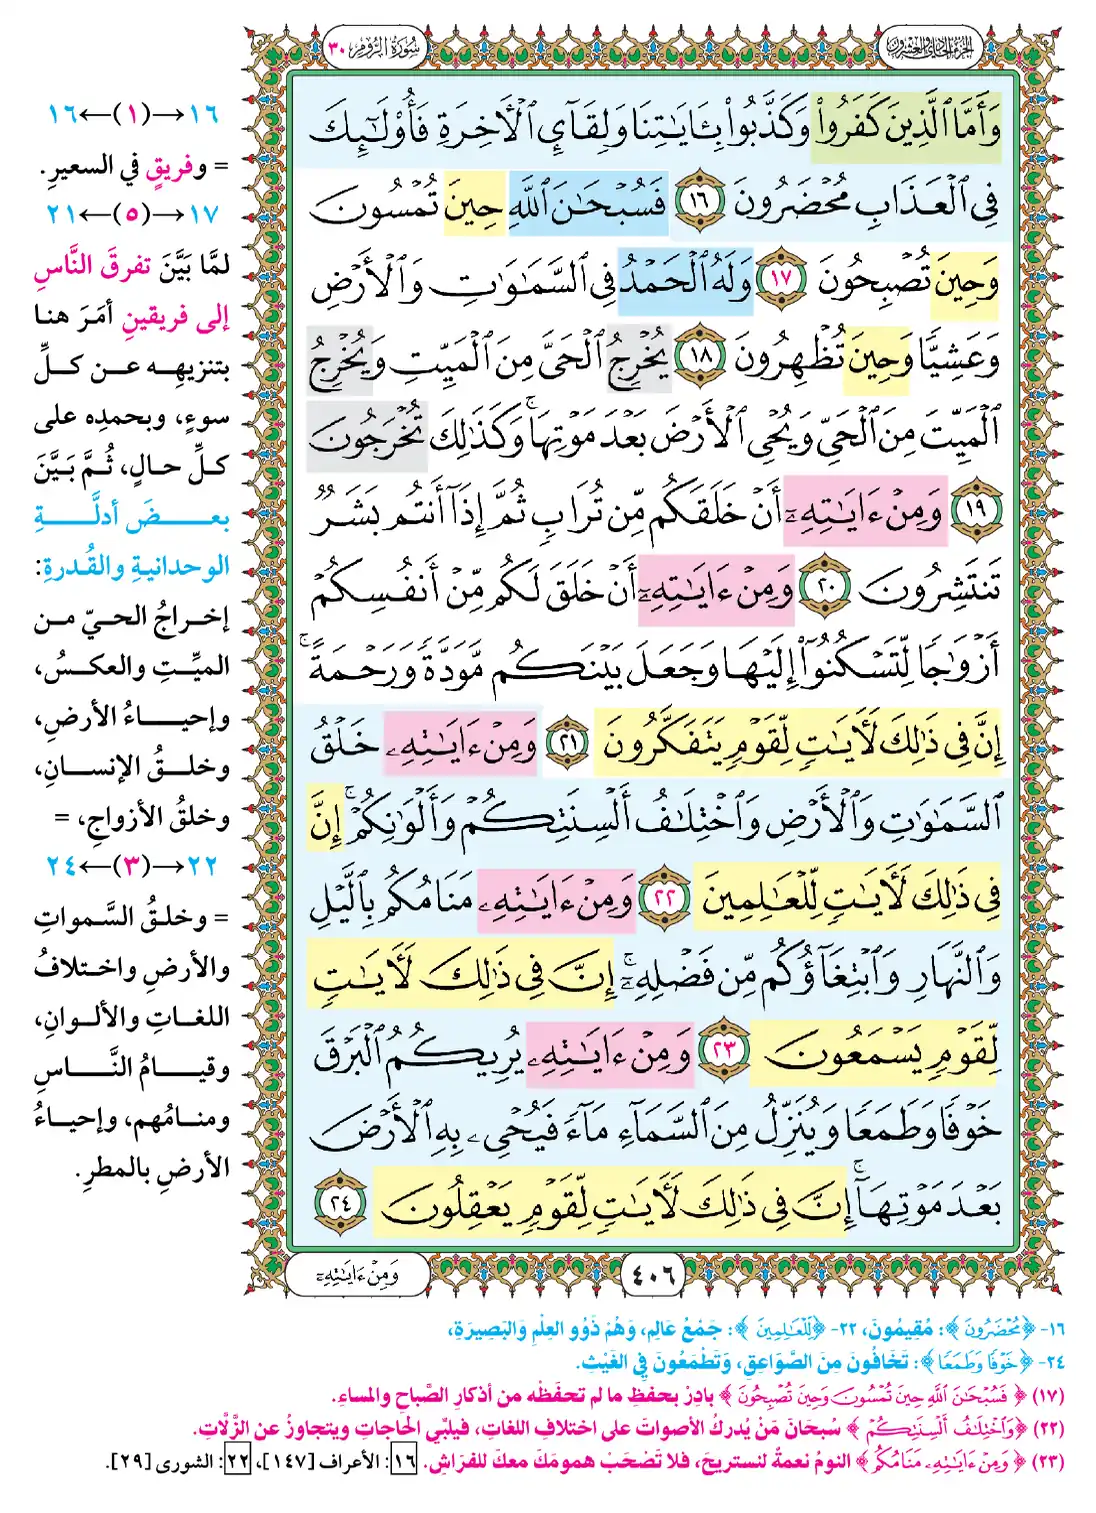 الجزء الحادي والعشرون
سُورَةُ الرُّومِ ٣٠
وَأَمَّا ٱلَّذِينَ كَفَرُوا۟ وَكَذَّبُوا۟ بِـَٔايَـٰتِنَا وَلِقَآئِ ٱلْـَٔاخِرَةِ فَأُو۟لَـٰٓئِكَ
فِى ٱلْعَذَابِ مُحْضَرُونَ ١٦ فَسُبْحَـٰنَ ٱللَّهِ حِينَ تُمْسُونَ
وَحِينَ تُصْبِحُونَ ١٧ وَلَهُ ٱلْحَمْدُ فِى ٱلسَّمَـٰوَٰتِ وَٱلْأَرْضِ
وَعَشِيًّا وَحِينَ تُظْهِرُونَ ١٨ يُخْرِجُ ٱلْحَىَّ مِنَ ٱلْمَيِّتِ وَيُخْرِجُ
ٱلْمَيِّتَ مِنَ ٱلْحَىِّ وَيُحْىِ ٱلْأَرْضَ بَعْدَ مَوْتِهَا ۚ وَكَذَٰلِكَ تُخْرَجُونَ
١٩ وَمِنْ ءَايَـٰتِهِۦٓ أَنْ خَلَقَكُم مِّن تُرَابٍ ثُمَّ إِذَآ أَنتُم بَشَرٌ
تَنتَشِرُونَ ٢٠ وَمِنْ ءَايَـٰتِهِۦٓ أَنْ خَلَقَ لَكُم مِّنْ أَنفُسِكُمْ
أَزْوَٰجًا لِّتَسْكُنُوٓا۟ إِلَيْهَا وَجَعَلَ بَيْنَكُم مَّوَدَّةً وَرَحْمَةً ۚ
إِنَّ فِى ذَٰلِكَ لَـَٔايَـٰتٍ لِّقَوْمٍ يَتَفَكَّرُونَ ٢١ وَمِنْ ءَايَـٰتِهِۦ خَلْقُ
ٱلسَّمَـٰوَٰتِ وَٱلْأَرْضِ وَٱخْتِلَـٰفُ أَلْسِنَتِكُمْ وَأَلْوَٰنِكُمْ ۚ إِنَّ
فِى ذَٰلِكَ لَـَٔايَـٰتٍ لِّلْعَـٰلِمِينَ ٢٢ وَمِنْ ءَايَـٰتِهِۦ مَنَامُكُم بِٱلَّيْلِ
وَٱلنَّهَارِ وَٱبْتِغَآؤُكُم مِّن فَضْلِهِۦٓ ۚ إِنَّ فِى ذَٰلِكَ لَـَٔايَـٰتٍ
لِّقَوْمٍ يَسْمَعُونَ ٢٣ وَمِنْ ءَايَـٰتِهِۦ يُرِيكُمُ ٱلْبَرْقَ
خَوْفًا وَطَمَعًا وَيُنَزِّلُ مِنَ ٱلسَّمَآءِ مَآءً فَيُحْىِۦ بِهِ ٱلْأَرْضَ
بَعْدَ مَوْتِهَآ ۚ إِنَّ فِى ذَٰلِكَ لَـَٔايَـٰتٍ لِّقَوْمٍ يَعْقِلُونَ ٢٤
٤٠٦
وَمِنْ ءَايَـٰتِهِۦٓ
١٦→(١)←١٦
= وفريقٍ في السعيرِ.
١٧→(٥)←٢١
لمَّا بَيَّنَ تفرقَ النَّاسِ
إلى فريقينِ أمَرَ هنا
بتنزيهِه عن كلِّ
سوءٍ، وبحمدِه على
كلِّ حالٍ، ثُمَّ بَيَّنَ
بعضَ أدلَّةِ
الوحدانيةِ والقُدرةِ:
إخراجُ الحيّ من
الميِّتِ والعكسُ،
وإحياءُ الأرضِ،
وخلقُ الإنسانِ،
وخلقُ الأزواجِ، =
٢٢→(٣)←٢٤
= وخلقُ السَّمواتِ
والأرضِ واختلافُ
اللغاتِ والألوانِ،
وقيامُ النَّاسِ
ومنامُهم، وإحياءُ
الأرضِ بالمطرِ.
١٦- ﴿مُحْضَرُونَ﴾: مُقِيمُونَ، ٢٢- ﴿لِّلْعَـٰلِمِينَ﴾: جَمْعُ عَالِمٍ، وَهُمْ ذَوُو العِلْمِ وَالبَصِيرَةِ،
٢٤- ﴿خَوْفًا وَطَمَعًا﴾: تَخَافُونَ مِنَ الصَّوَاعِقِ، وَتَطْمَعُونَ فِي الغَيْثِ.
(١٧) ﴿فَسُبْحَـٰنَ ٱللَّهِ حِينَ تُمْسُونَ وَحِينَ تُصْبِحُونَ﴾ بادِرْ بحفظِ ما لم تحفَظْه من أذكارِ الصَّباحِ والمساءِ.
(٢٢) ﴿وَٱخْتِلَـٰفُ أَلْسِنَتِكُمْ﴾ سُبحَانَ مَنْ يُدركُ الأصواتَ على اختلافِ اللغاتِ، فيلبِّي الحَاجاتِ ويتجاوزُ عن الزَّلَّاتِ.
(٢٣) ﴿وَمِنْ ءَايَـٰتِهِۦ مَنَامُكُم﴾ النومُ نعمةٌ لنستريحَ، فلا تَصْحَبْ همومَكَ معكَ للفرَاشِ. ١٦: الأعراف [١٤٧]، ٢٢: الشورى [٢٩].